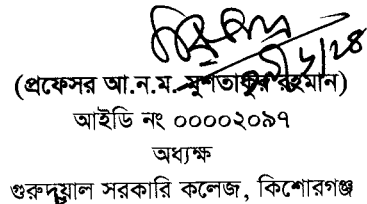 (প্রফেসর আ.ন.ম. মুশতাকুর রহমান)
আইডি নং ০০০০২০৯৭
অধ্যক্ষ
গুরুদয়াল সরকারি কলেজ, কিশোরগঞ্জ